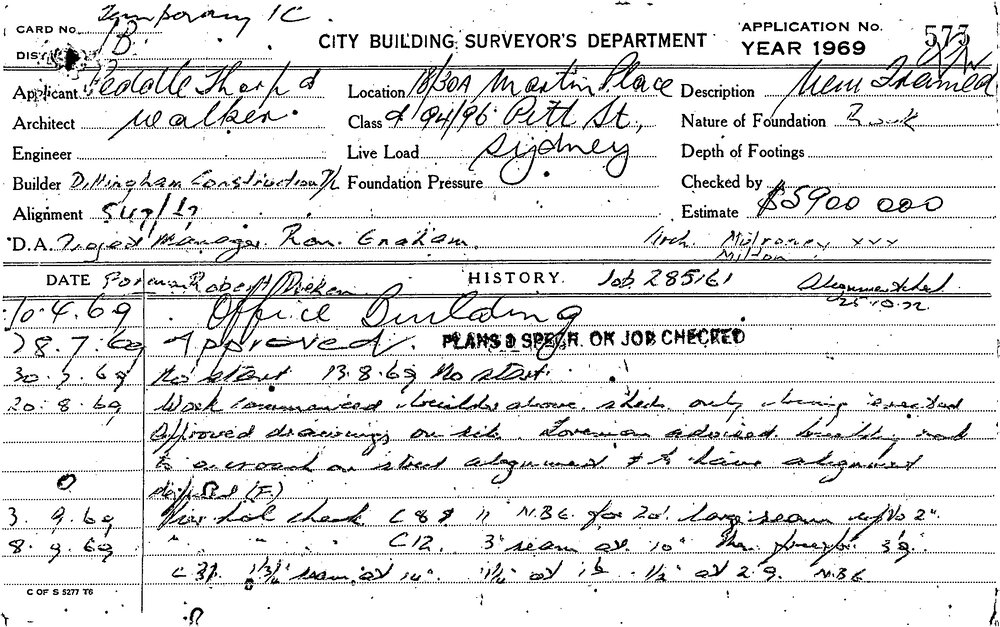 Temporary 1C.
CARD No. 1B.
CITY BUILDING SURVEYOR'S DEPARTMENT
APPLICATION No. 575
DIST
YEAR 1969
Applicant Peddle Thorp &
Location 18/30A Martin Place
Description New Framed
Architect Walker.
Class & 194/96 Pitt St.,
Nature of Foundation Rock
Engineer
Live Load Sydney
Depth of Footings
Builder Dillingham Construction P/L
Foundation Pressure
Checked by
Alignment
Estimate $5900 000
D.A. Project Manager. Ron. Graham.
Arch. Mulroney xxx
Milton
DATE Foreman Robert
HISTORY.
Job 285161
25.10.72
10.4.69 Office Building
28.7.69 Approved. PLANS & SPECN. ON JOB CHECKED
30.7.69 No start 13.8.69 No start.
20.8.69 Work commenced builders above sheds only being erected
Approved drawings on site. Foreman advised not
to encroach on street alignment & to have alignment
defined (F.)
3.9.69 hole check C8 & 11 N.B.G. for 20' large seam up to 2".
8.9.69 " " " C12. 3" seam at 10"
C 31. 1 3/4" seam at 14". 1 1/4" at 1/2" at 2.9. N.B.G
C OF S 5277 T6